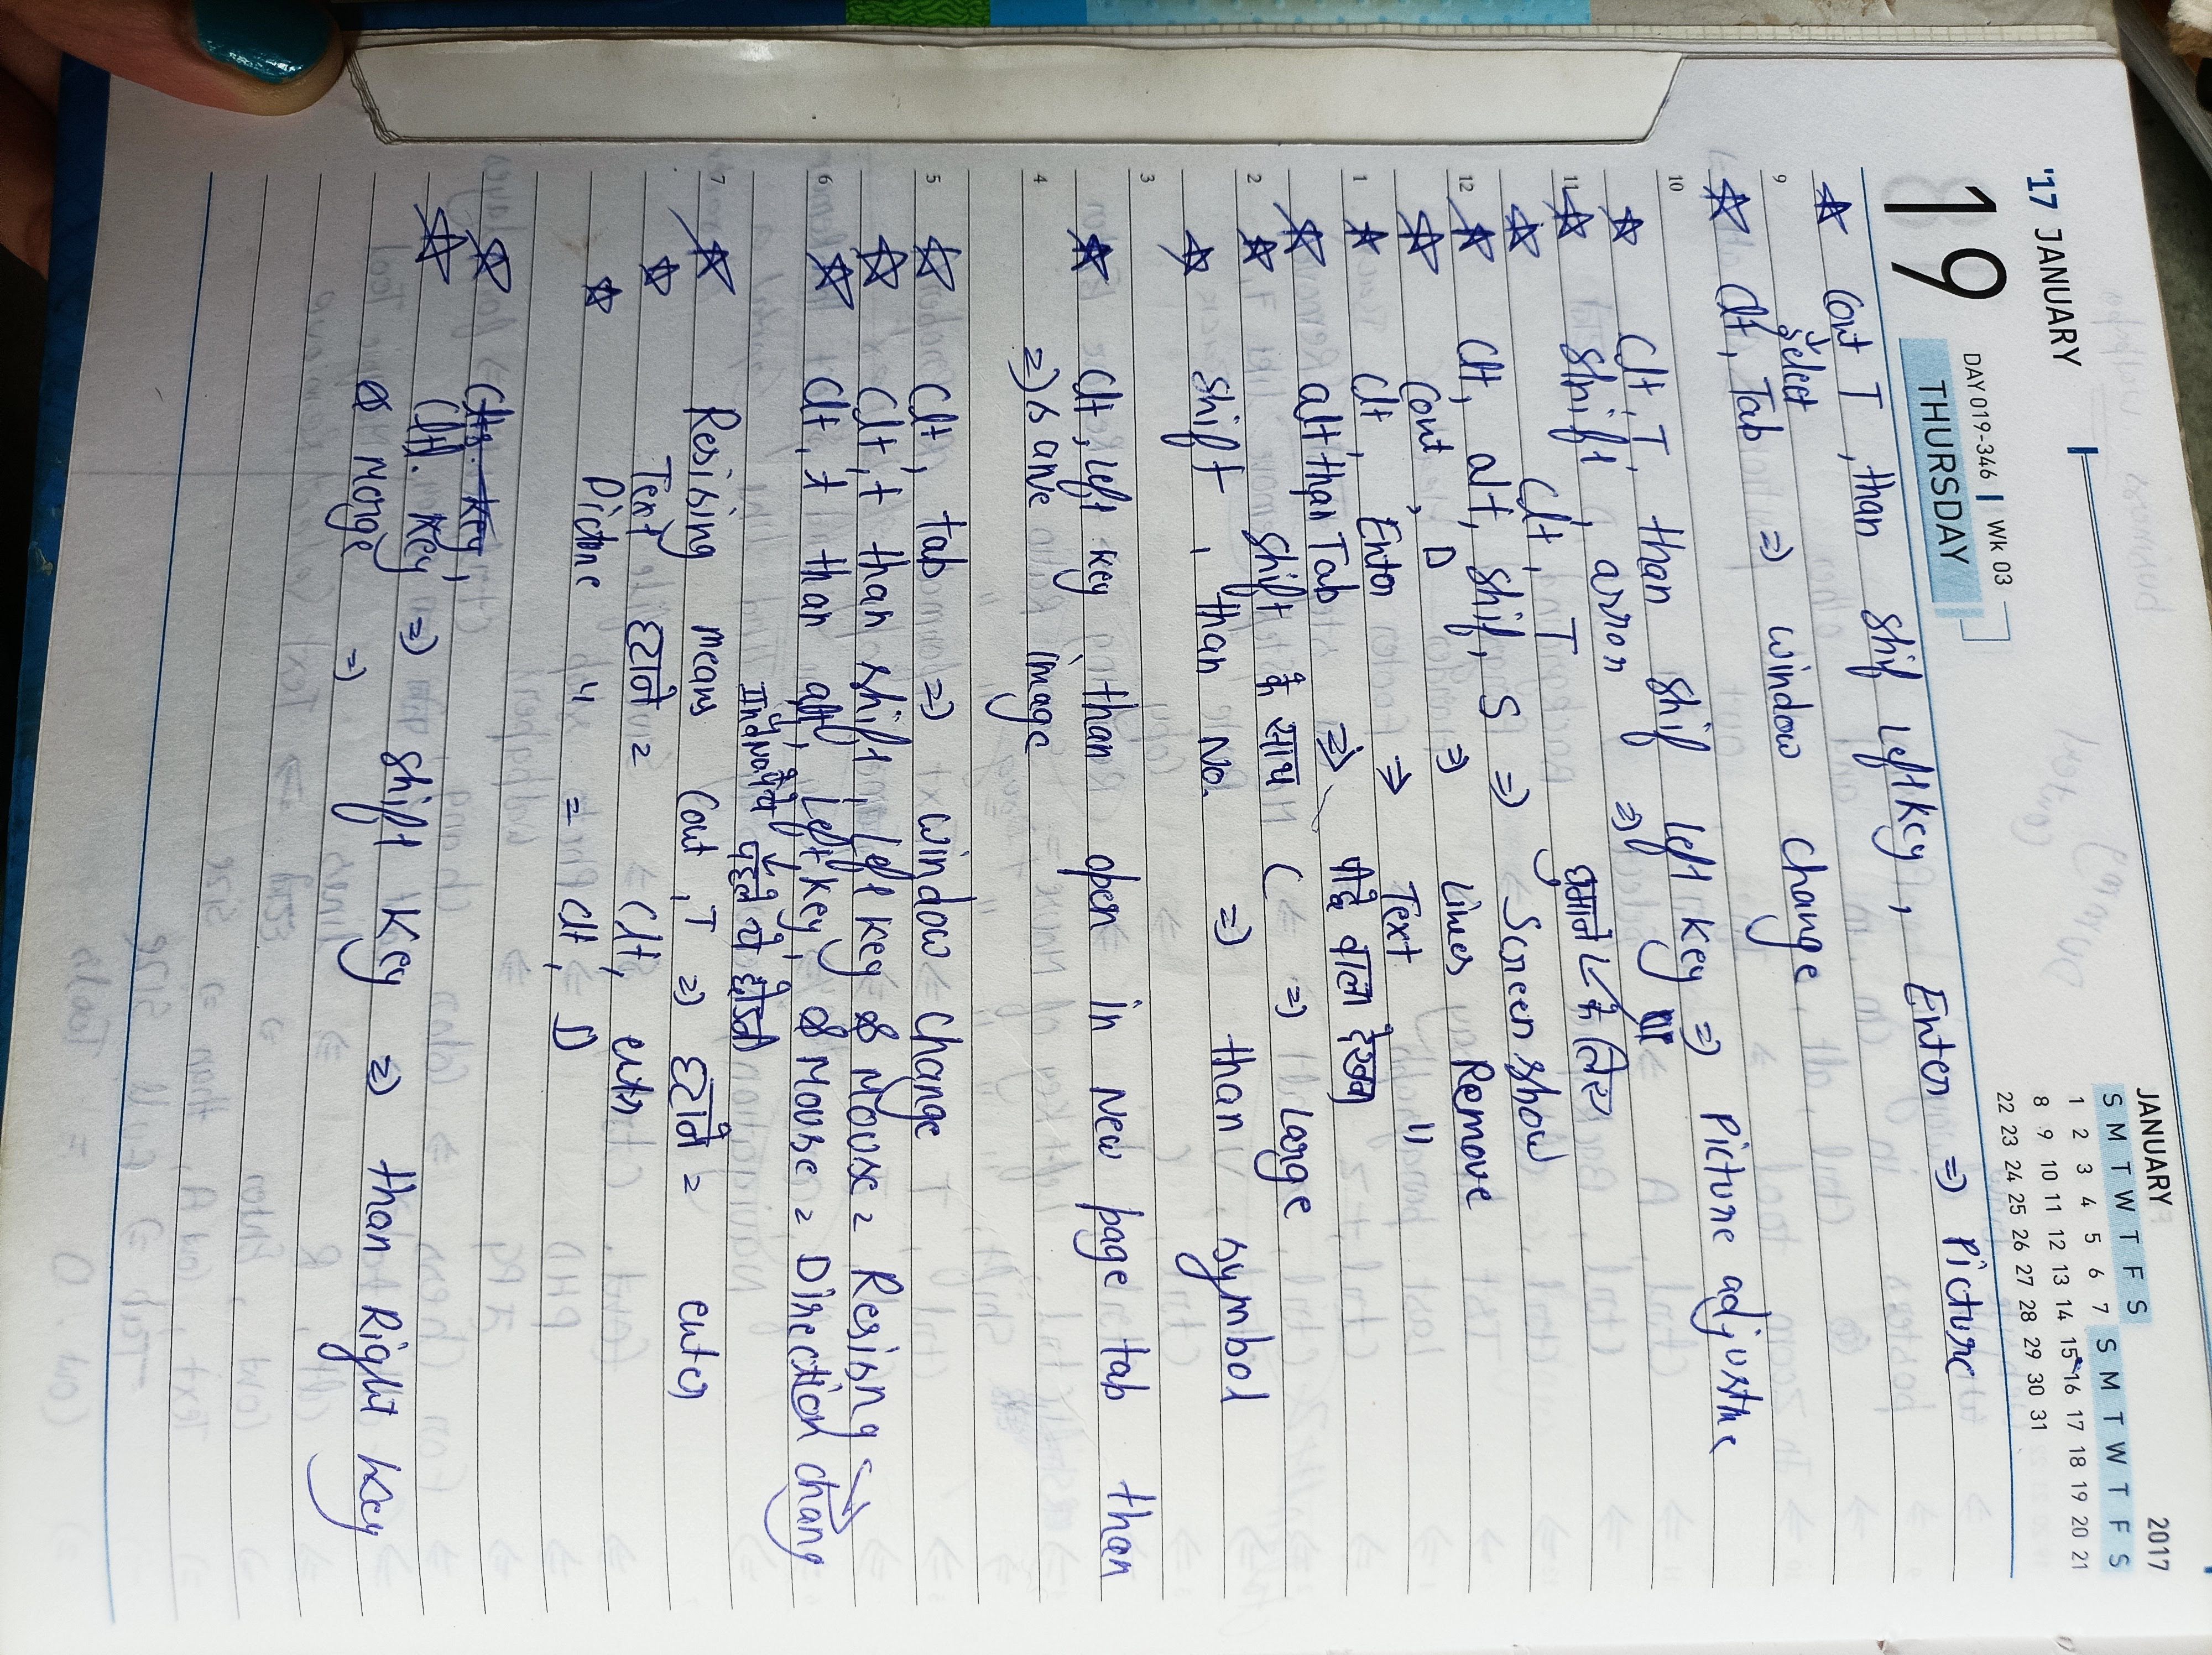 JANUARY 2017
S M T W T F S S M T W T F S
1 2 3 4 5 6 7
8 9 10 11 12 13 14 15 16 17 18 19 20 21
22 23 24 25 26 27 28 29 30 31
'17 JANUARY
19
DAY 019-346 | Wk 03
THURSDAY
☆ Cont T , than Shif Left Key , Enter => Picture
↓
select
9
☆ Clt, Tab => window change
10
☆ Clt, T, than Shif left Key => Picture adjustme
11 ☆ Shift , arron =>
घुमाने के लिए
☆ Clt, T
12 ☆ Clt, alt, Shif, S => Screen show
☆ Cont , D => Lines Remove
1 ☆ Clt, Enter => Text "
☆ alt than Tab => पीछे वाला देखना
2 ☆ Shift के साथ C => Large
☆ Shift , than No. => than symbol
3
☆ Clt, Left Key than open in New page tab than
4 => save image
5 ☆ Clt, tab => window change
☆ Clt, t than shift, Left Key & Mouse = Resisng
6 ☆ Clt, t than alt, Left Key, & Mouse = Direction chang
IInd No. पे ये पहले ये छोडनी
7 ☆ Resising means Cont , T => हटाने = enter
☆ Text हटाने = Clt, entr
☆ Picture " = Clt, D
☆ Clts. Key,
☆ Clt. Key => Shift Key => than Right Key
Morge =>